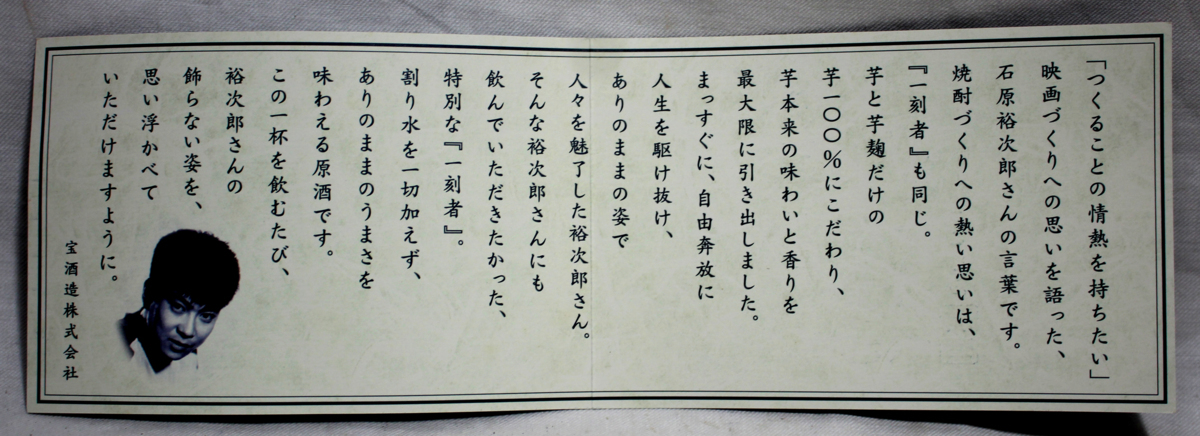 「つくることの情熱を持ちたい」
映画づくりへの思いを語った、
石原裕次郎さんの言葉です。
焼酎づくりへの熱い思いは、
『一刻者』も同じ。
芋と芋麹だけの
芋一〇〇％にこだわり、
芋本来の味わいと香りを
最大限に引き出しました。
まっすぐに、自由奔放に
人生を駆け抜け、
ありのままの姿で
人々を魅了した裕次郎さん。
そんな裕次郎さんにも
飲んでいただきたかった、
特別な『一刻者』。
割り水を一切加えず、
ありのままのうまさを
味わえる原酒です。
この一杯を飲むたび、
裕次郎さんの
飾らない姿を、
思い浮かべて
いただけますように。
宝酒造株式会社